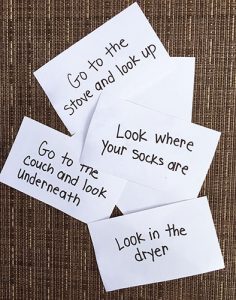 Go to the
stove and look up
Look where
your socks are
Go to the
couch and look
underneath
Look in the
dryer